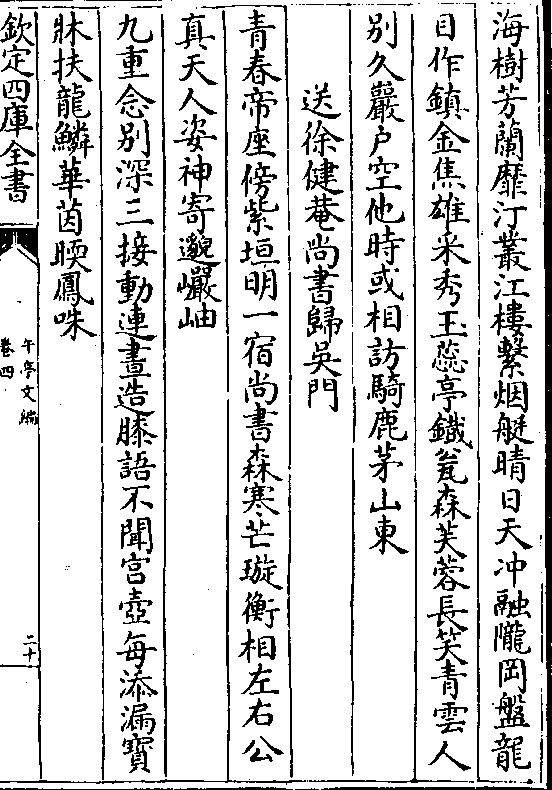 海樹芳蘭靡汀叢江樓繫烟艇晴日天冲融隴岡盤龍
目作鎮金焦雄采秀玉蕊亭鐡瓮森芙蓉長笑青雲人
别久巖户空他時或相訪騎鹿茅山東
送徐健菴尚書歸吳門
青春帝座傍紫垣明一宿尚書森寒芒璇衡相左右公
真天人姿神寄邈巗岫
九重念别深三接動連晝造膝語不聞宫壺每添漏寳
牀扶龍鱗華茵暎鳳咮
欽定四庫全書
午亭文編
卷四
二十